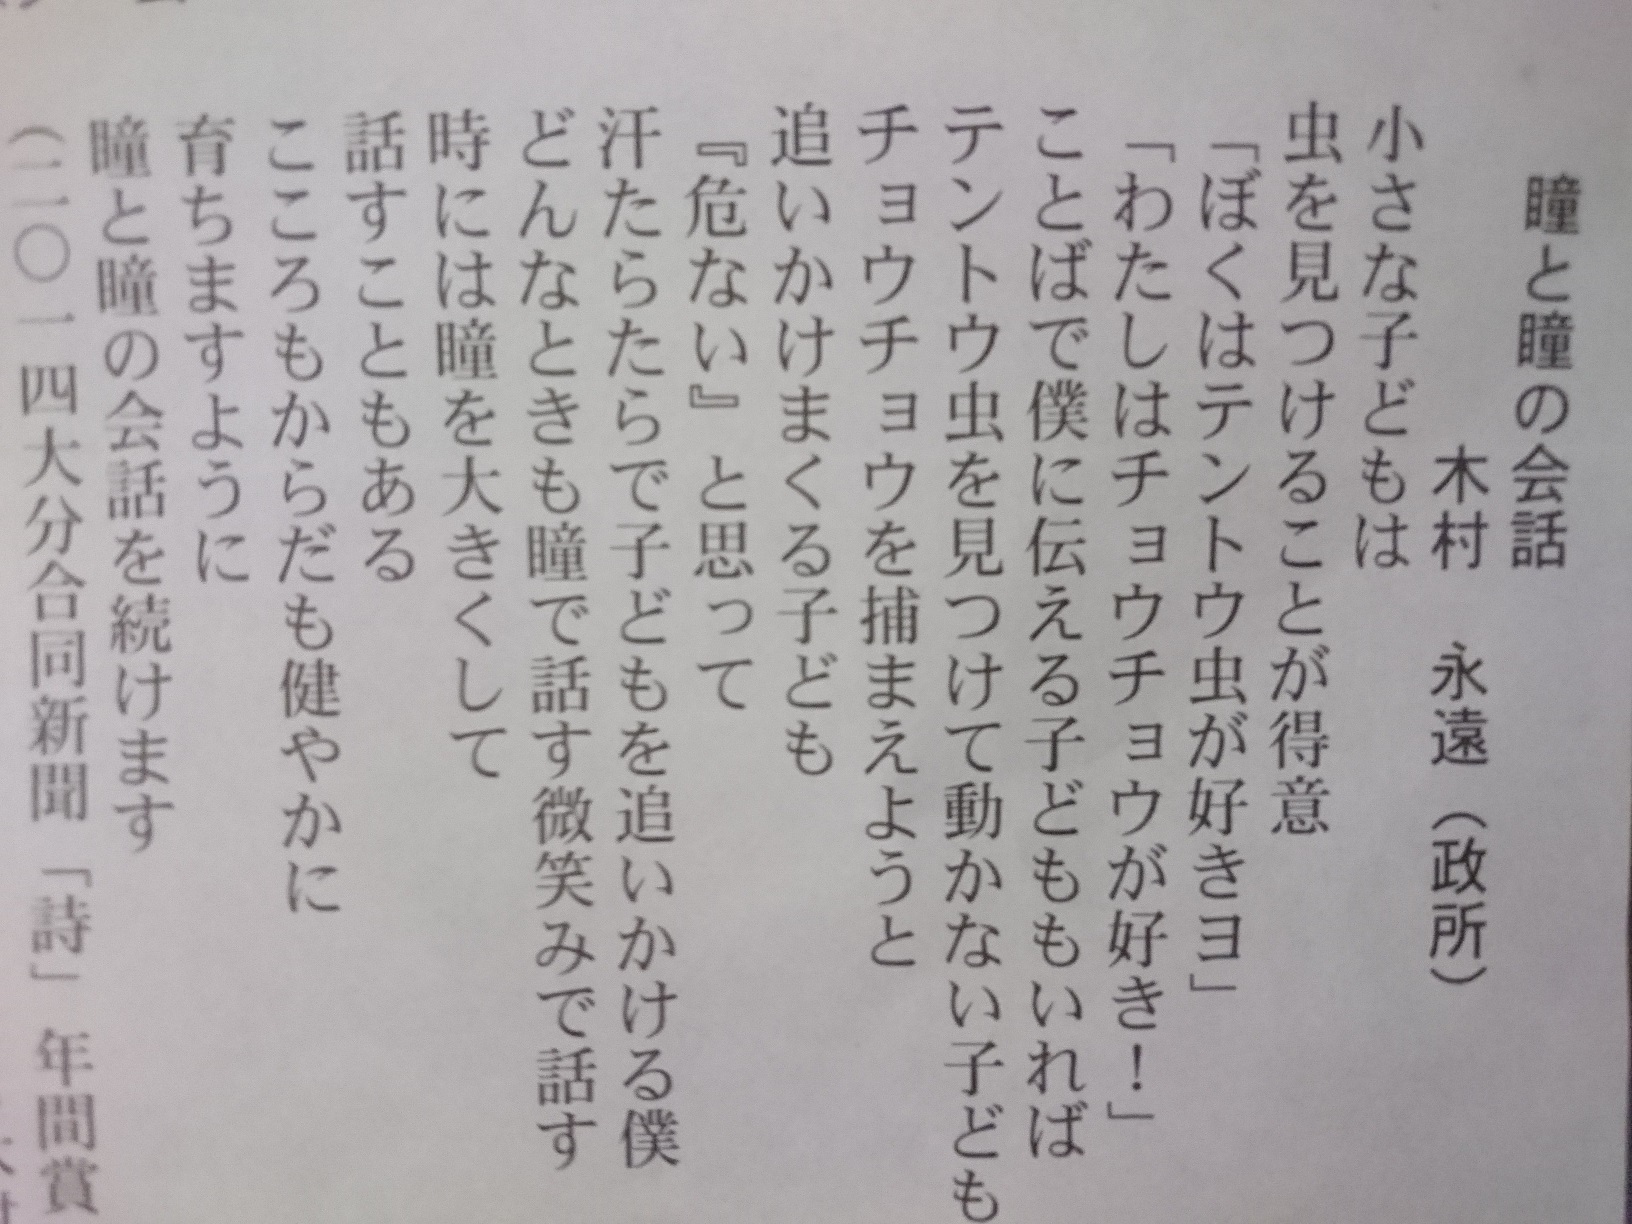 瞳と瞳の会話
木村 永遠(政所)
小さな子どもは
虫を見つけることが得意
「ぼくはテントウ虫が好きヨ」
「わたしはチョウチョウが好き!」
ことばで僕に伝える子どももいれば
テントウ虫を見つけて動かない子ども
チョウチョウを捕まえようと
追いかけまくる子ども
『危ない』と思って
汗たらたらで子どもを追いかける僕
どんなときも瞳で話す微笑みで話す
時には瞳を大きくして
話すこともある
こころもからだも健やかに
育ちますように
瞳と瞳の会話を続けます
(二〇一四大分合同新聞「詩」年間賞